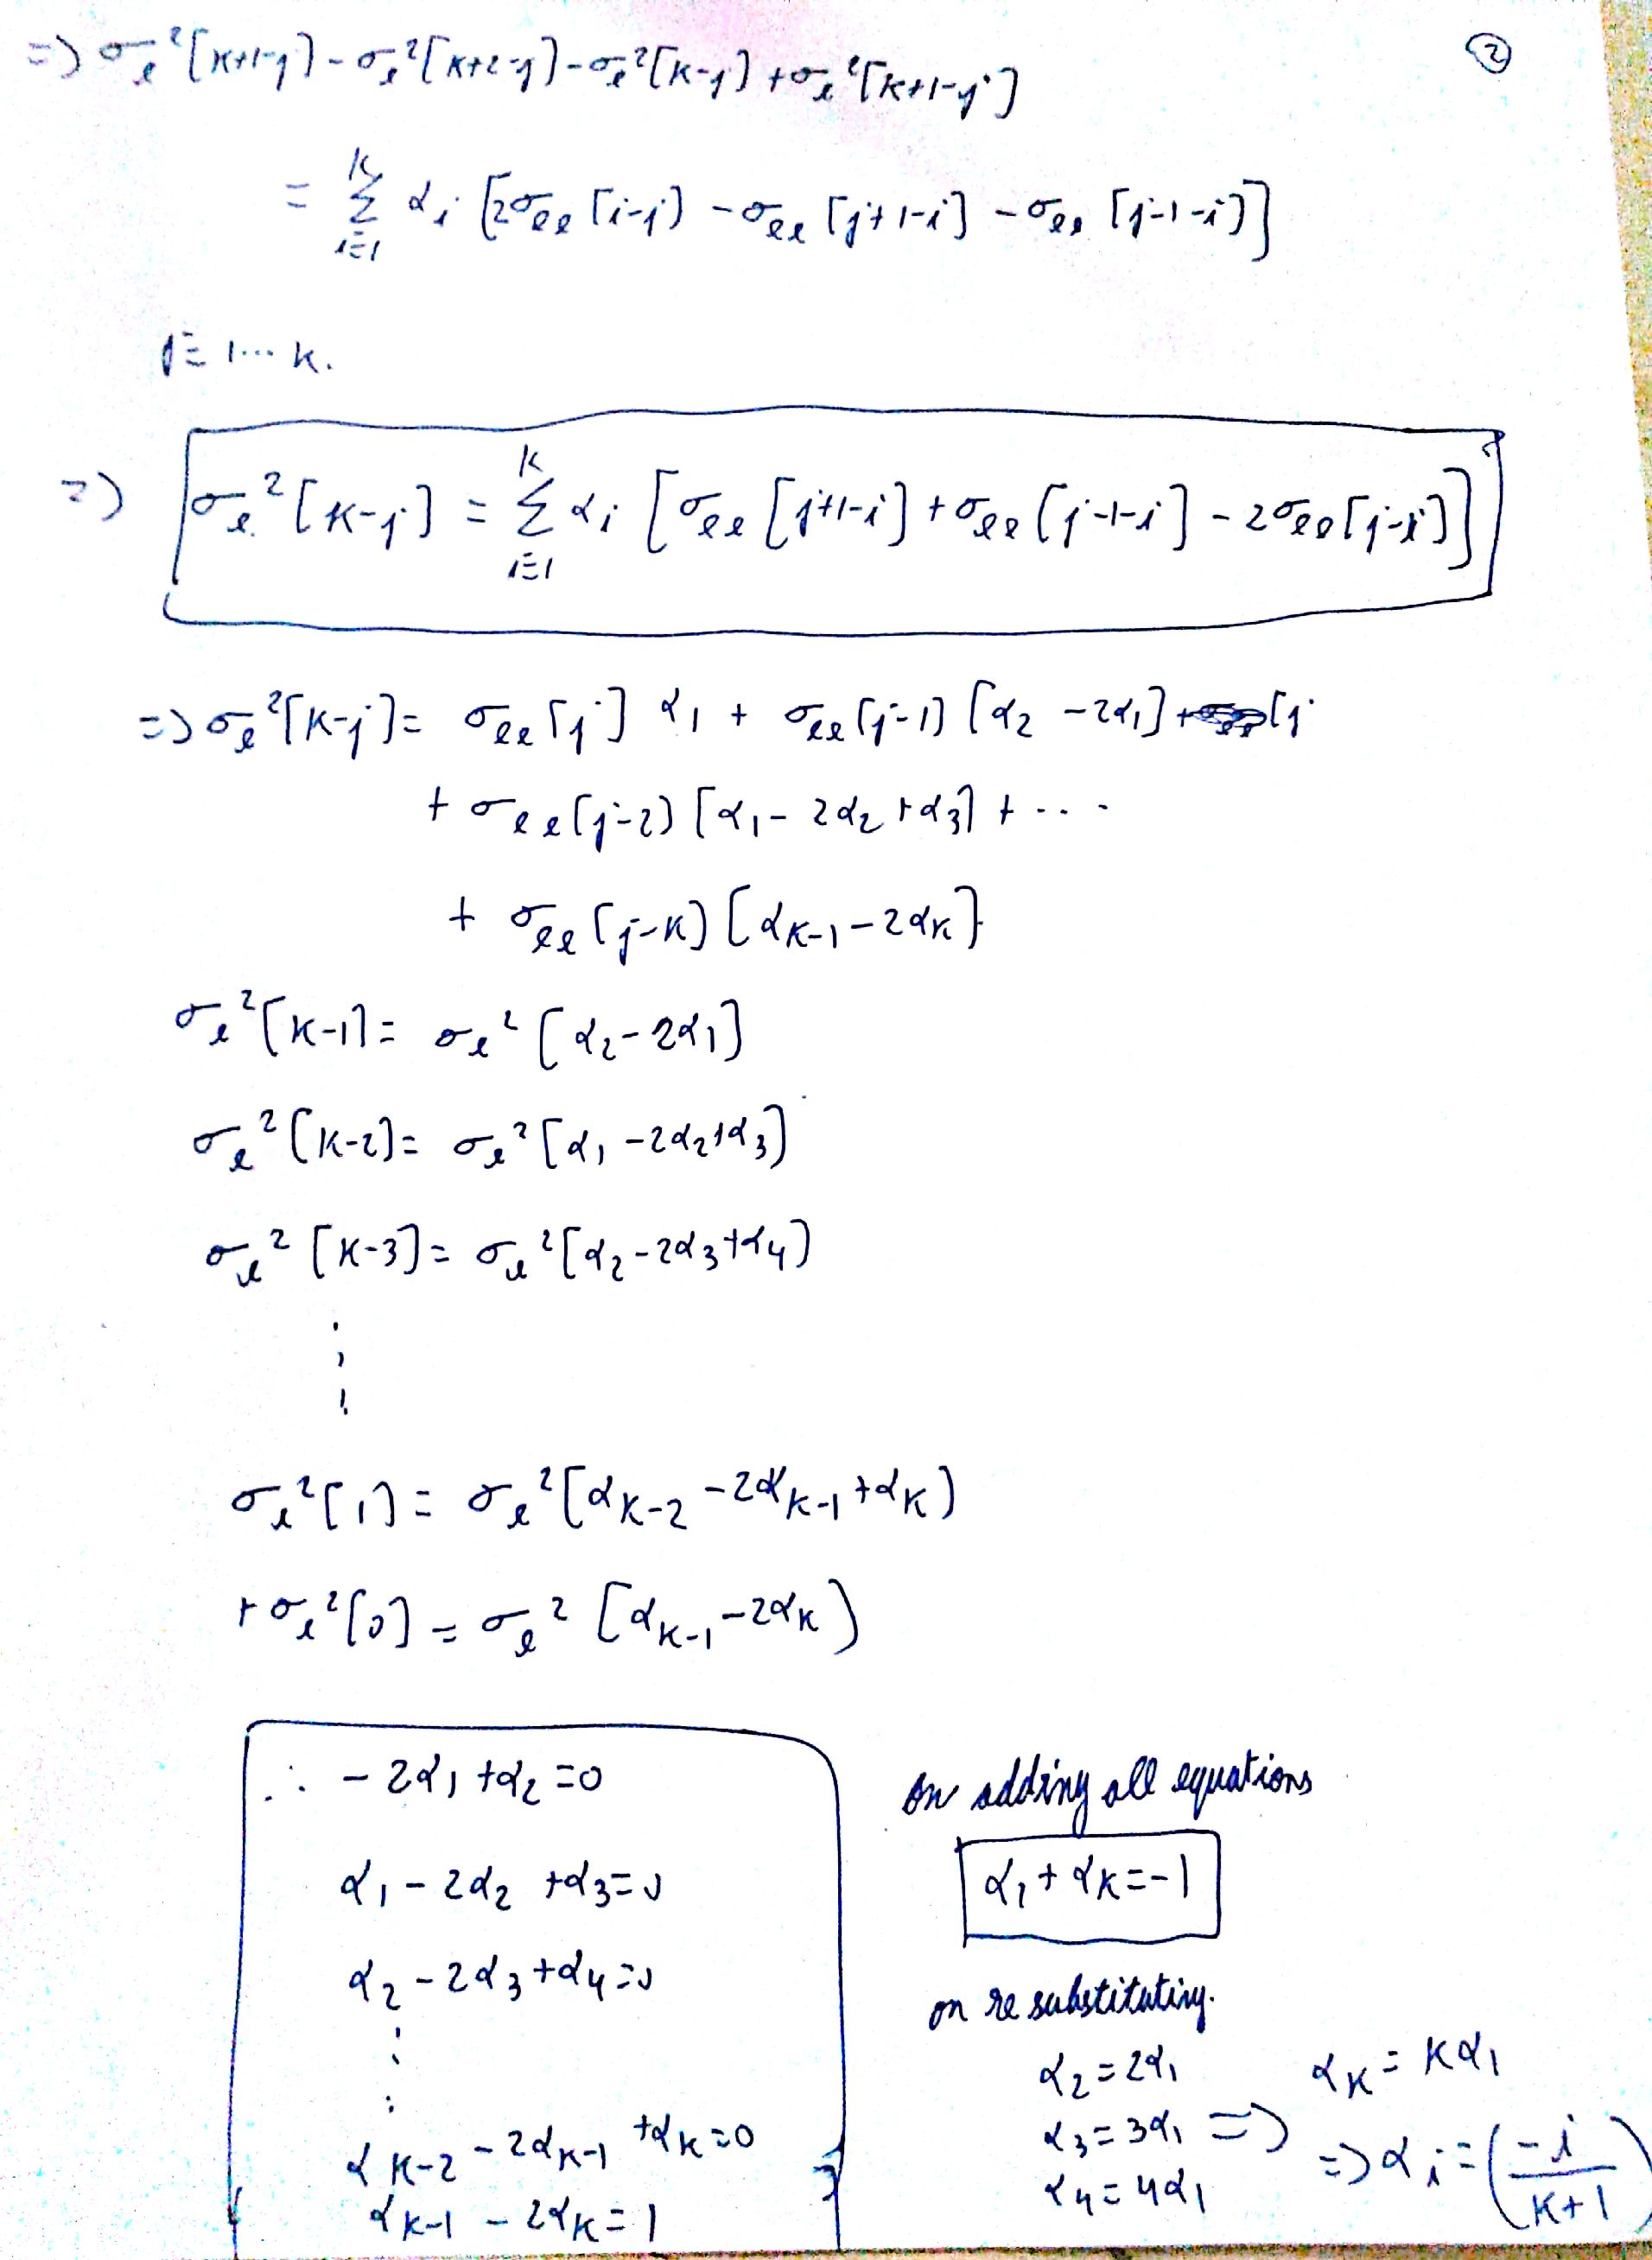 ②
=> σₑ²[k+1-j] - σₑ²[k+2-j] - σₑ²[k-j] + σₑ²[k+1-j]
= Σᵢ₌₁ᴷ αᵢ [2σₑₑ[i-j] - σₑₑ[j+1-i] - σₑₑ[j-1-i]]
j = 1... k.
=> σₑ²[K-j] = Σᵢ₌₁ᴷ αᵢ [σₑₑ[j+1-i] + σₑₑ[j-1-i] - 2σₑₑ[j-i]]
=> σₑ²[K-j] = σₑₑ[j] α₁ + σₑₑ[j-1] [α₂ - 2α₁] + [j
+ σₑₑ[j-2] [α₁ - 2α₂ + α₃] + ...
+ σₑₑ[j-K] [α_{K-1} - 2α_K]
σₑ²[K-1] = σₑ² [α₂ - 2α₁]
σₑ²[K-2] = σₑ² [α₁ - 2α₂ + α₃]
σₑ²[K-3] = σₑ² [α₂ - 2α₃ + α₄]
⋮
σₑ²[1] = σₑ² [α_{K-2} - 2α_{K-1} + α_K]
+ σₑ²[0] = σₑ² [α_{K-1} - 2α_K]
∴ - 2α₁ + α₂ = 0
α₁ - 2α₂ + α₃ = 0
α₂ - 2α₃ + α₄ = 0
⋮
α_{K-2} - 2α_{K-1} + α_K = 0
α_{K-1} - 2α_K = 1
On adding all equations
α₁ + α_K = -1
on re substituting.
α₂ = 2α₁
α₃ = 3α₁ =>
α₄ = 4α₁
α_K = Kα₁
=> αᵢ = (-i/(K+1))